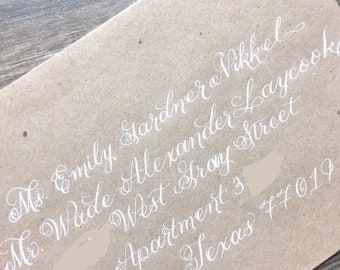 Ms Emily Gardner Nikkel
Mr. Wade Alexander Laycook
West Gray Street
Apartment 3
Texas 77019